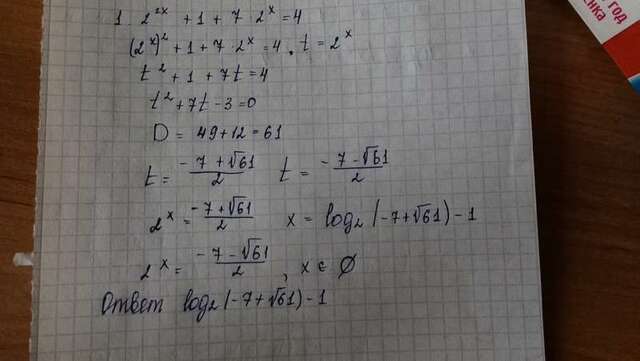 1 2^{2x} + 1 + 7 2^x = 4
(2^x)^2 + 1 + 7 2^x = 4. t = 2^x
t^2 + 1 + 7t = 4
t^2 + 7t - 3 = 0
D = 49 + 12 = 61
t = \frac{-7+\sqrt{61}}{2} t = \frac{-7-\sqrt{61}}{2}
2^x = \frac{-7+\sqrt{61}}{2} x = log_2(-7+\sqrt{61})-1
2^x = \frac{-7-\sqrt{61}}{2}, x ∈ Ø
Ответ log_2(-7+\sqrt{61})-1
ГОД